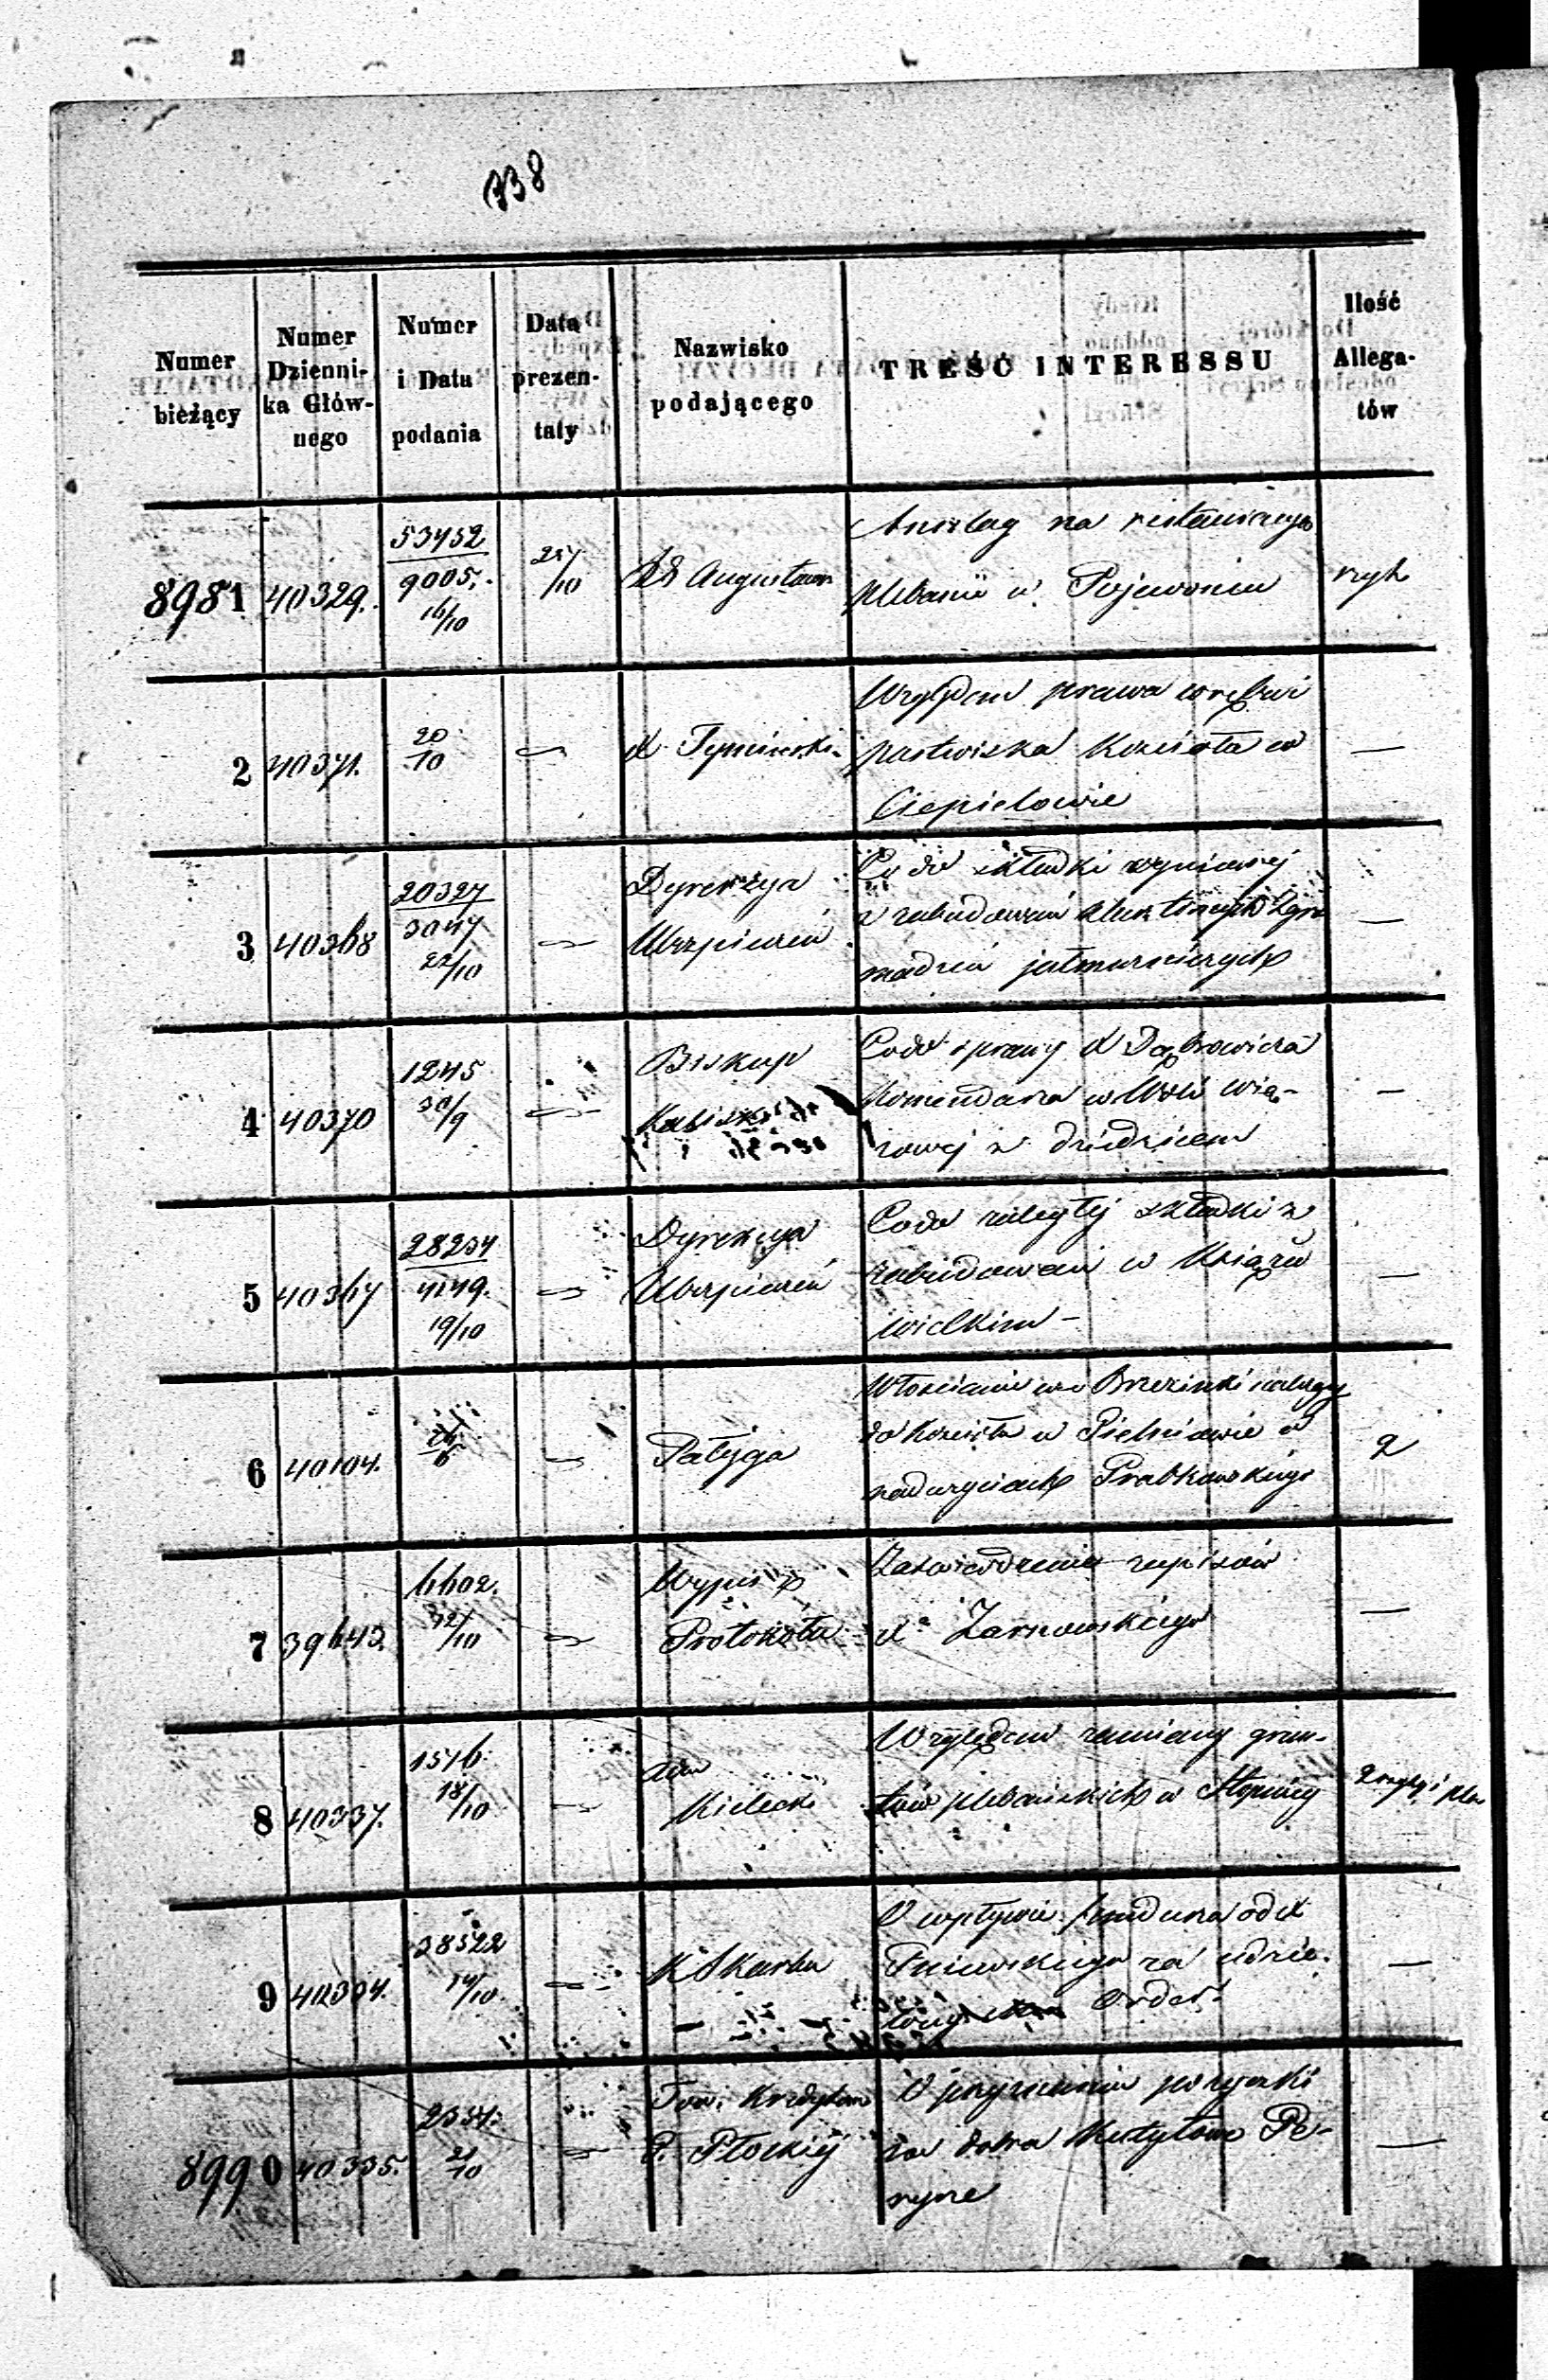 338
Numer bieżący
Numer Dzienni-ka Głów-nego
Numer i Data podania
Data prezen-taty
Nazwisko podającego
TREŚĆ INTERESSU
Ilość Allega-tów
8981 40329. 53452 9005. 16/10 27/10 Augustowski
Anszlag na restauracyą
plebanii w Pojewoniu
ryh
2 40371. 20/10 X Tymiński
Względem prawa wrębu i
pastwiska Kościoła w
Ciepielowie
—
3 40368 20327 3047 22/10
Dyrekcya
Ubezpieczeń
Co do składki
z zabudowań klasztornych Zgro
madzeń jałmużniczych
—
4 40370 1245 30/9
Biskup
Kaliski
Co do sprawy X Dąbrowicza
Komendarza w Woli Wią-
zowej z dziedzicem
—
5 40367 28234 4149. 19/10
Dyrekcya
Ubezpieczeń
Co do zaległej składki z
zabudowań w Książu
wielkim —
—
6 40104.
Patyga
Włościanie wsi Brzezinki należącej
do Kościoła w Pielniawie o
nadużyciach Prabkowskiego
2
7 39643. 6602. 12/10
Wypis z
Protokołu
Zatwierdzenie zapisów
X Żarnowskiego
—
8 40337. 1516 18/10
Adm
Kielecki
Względem zamiany grun-
tów plebańskich w Stopnicy
9 40304. 38522 14/10
K S Karbu
O wpływie funduszu od X
Pniewskiego za udzie-
lony Order
—
8990 40335. 2334. 21/10
Tow. Kredytowe
G. Płockiej
O przyznaniu pożyczki
na dobra Pe-
ryne
—